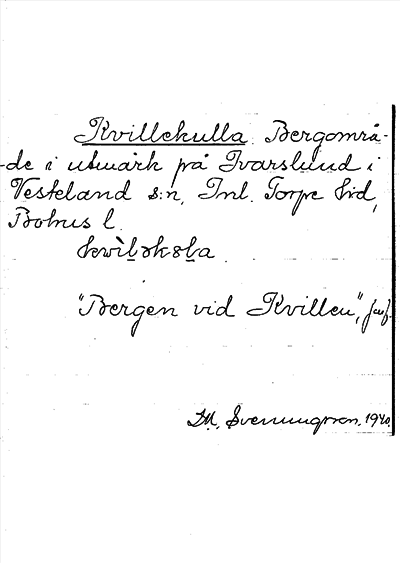 Kvillekulla. Bergområ-
-de i utmark på Ivarslund i
Vesteland s:n, Inl. Torpe hd,
Bohus l.
"Bergen vid Kvillen", jmf.
D.M. Svenningsson. 1940.